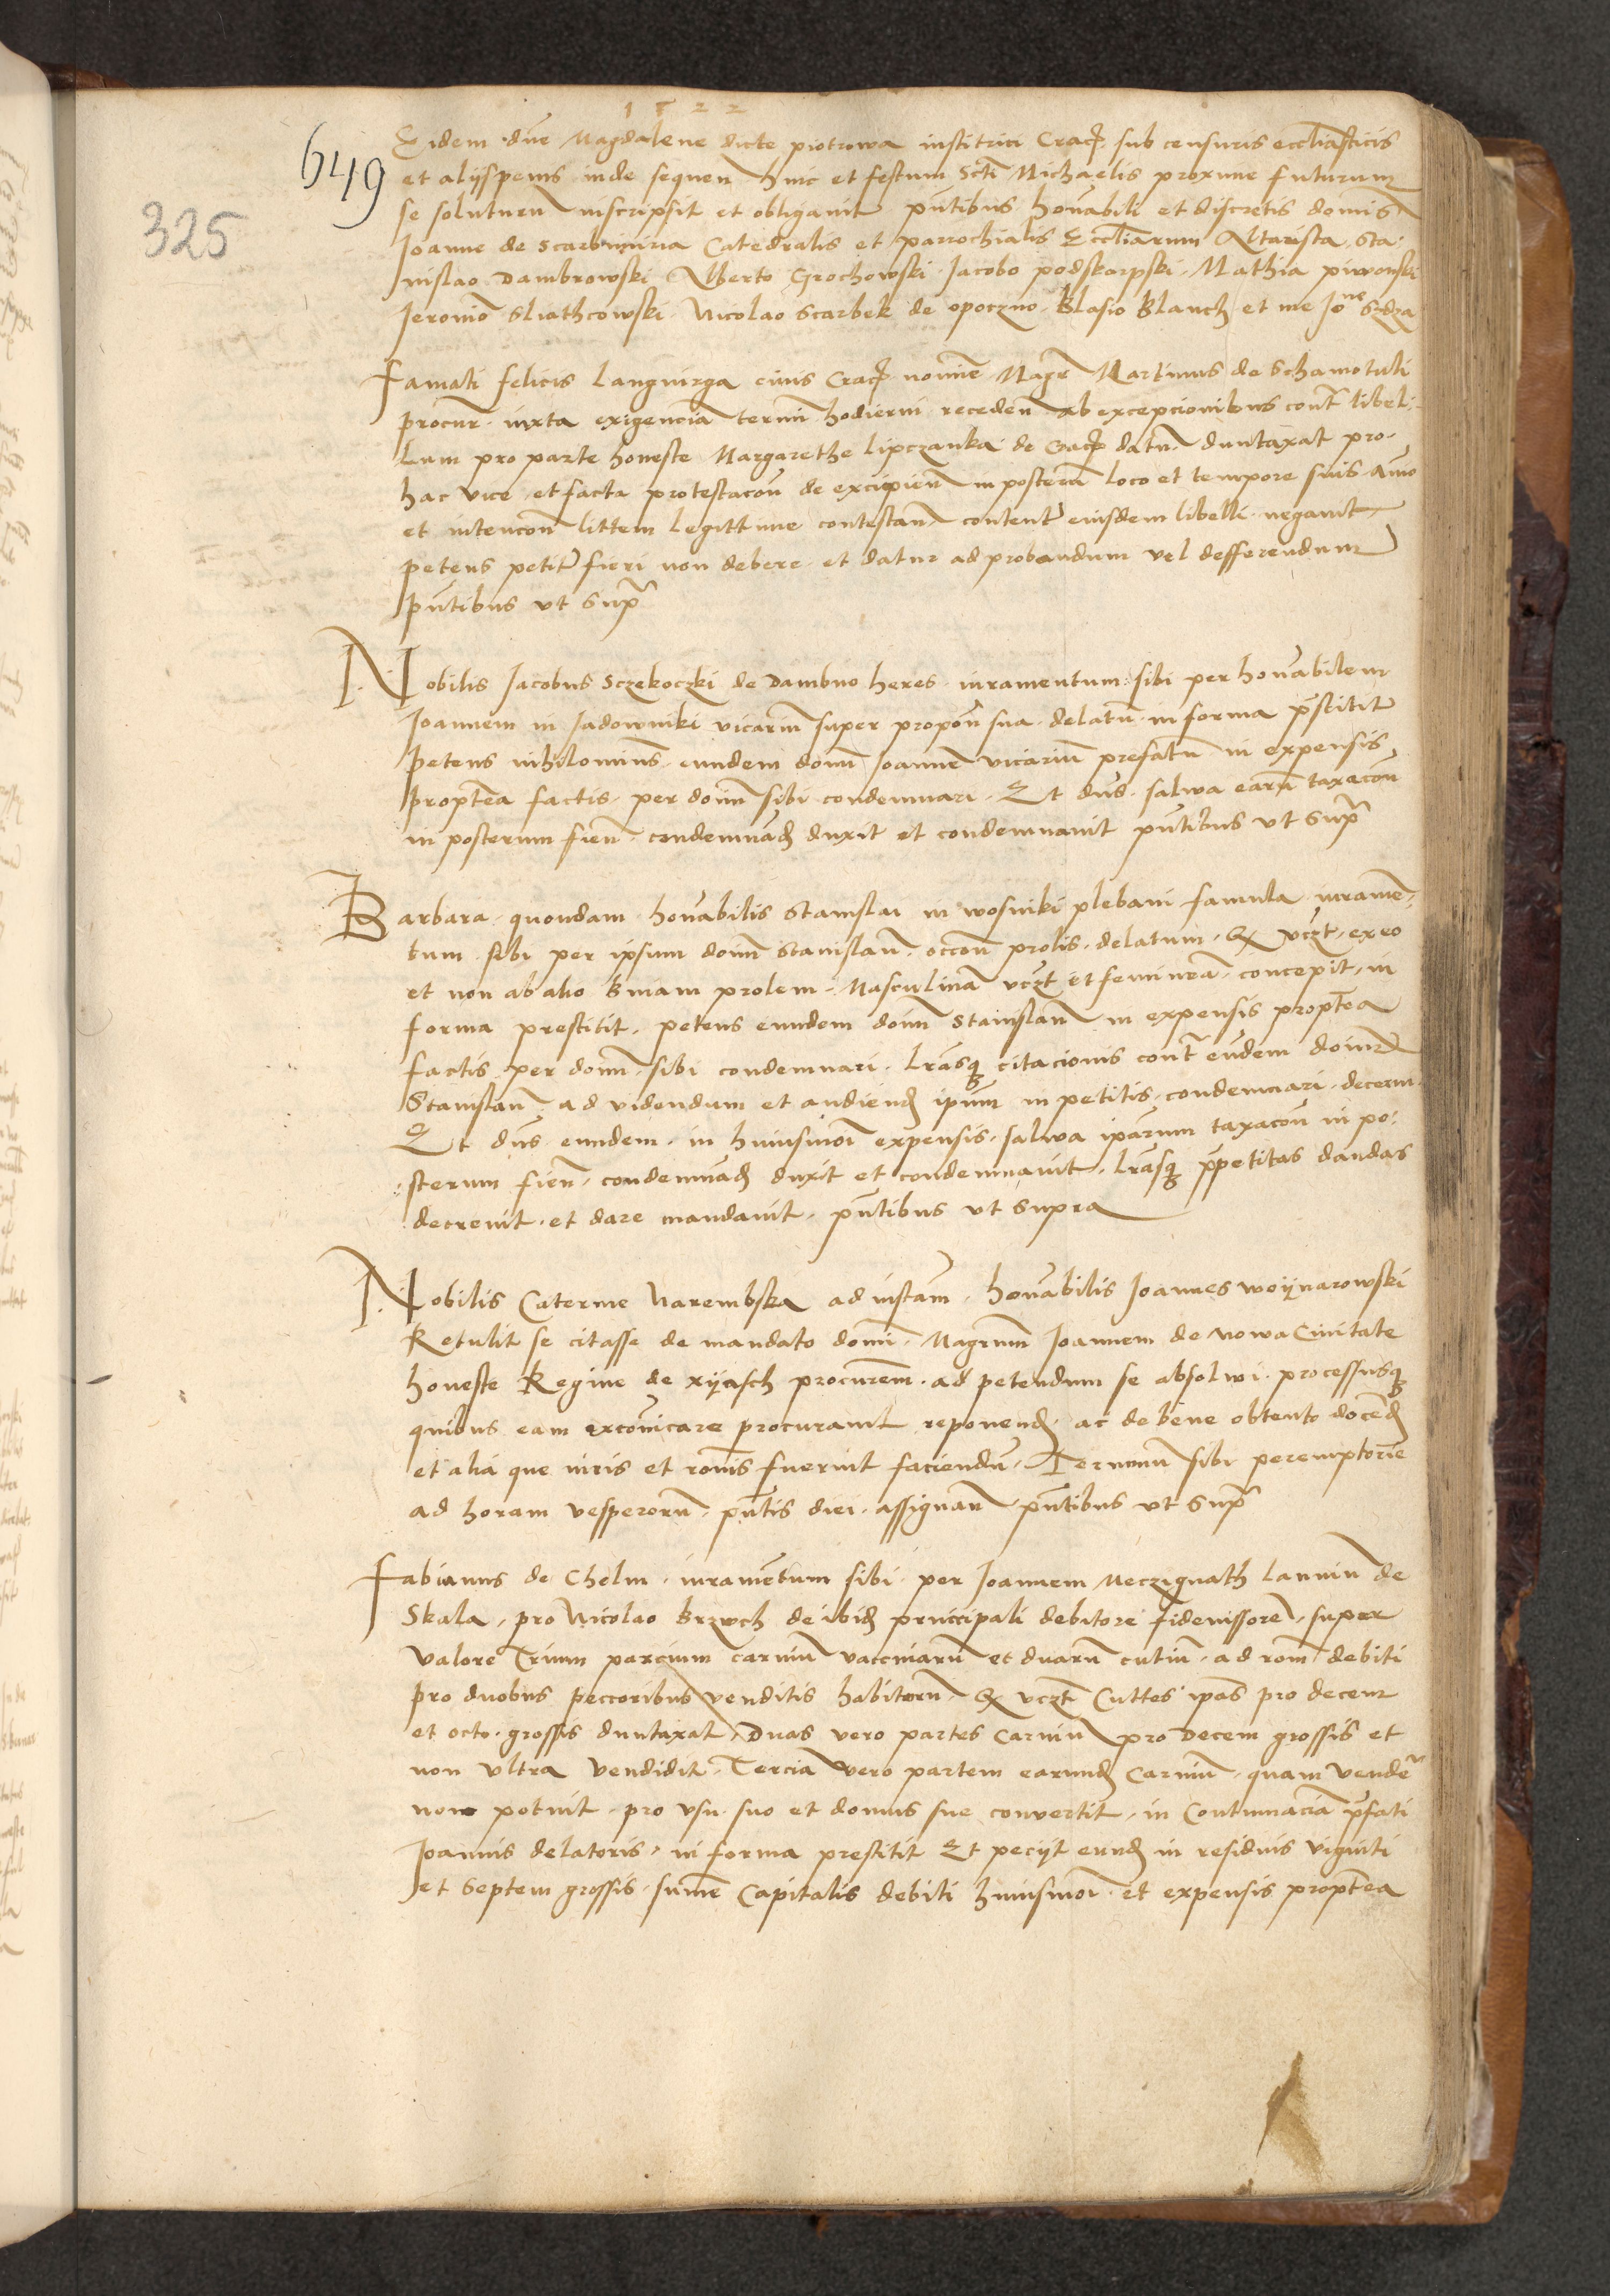 1522
649
325
Eidem dne Magdalene dicte piotrowa institrici Crac sub censuris eccliasticis
et alijs penis inde sequen hinc et festum Scti Michaelis proxime futurum
se soluturu inscripsit et obligavit pntibus honabili et discretis domis
Ioanne de Scarbimiria Catedralis et parrochialis Eccliarum Altarista, Sta:
nislao Dambrowski Alberto Grochowski Iacobo podskarpski Mathia piwonski
Ieronio Sliathcowski Nicolao Scarbek de opoczno Blasio Blanch et me Io
Famati felicis Langvirga civis Crac nomine Magr Martinus de Schamotuli
procur iuxta exigencia termi hodierni receden ab excepcionibus cont libel:
lum pro parte honeste Margarethe lipczanka de Crac datu duntaxat pro
hac vice et facta protestacon de excipien in posteru loco et tempore suis Amo
et intencon littem legittime contestan content eiusdem libelli negavit
petens petit fieri non debere et datur ad probandum vel defferendum
pntibus ut Supr
Nobilis Iacobus Sczekoczki de Dambno heres iuramentum sibi per honabilem
Ioannem in Jadowniki vicariu super propon sua delatu in forma pstitit
petens nihilominus eundem donu Ioanne vicariu prefatu in expensis
proptea factis per donu sibi condemnari Et dns salwa earu taxacon
in posterum fien condemnad duxit et condemnavit pntibus ut Supr
Barbara quondam honabilis Stanislai in wosniki plebani famula iurame
tum sibi per ipsum donu Stanislau occon prolis delatum Q vczt ex eo
et non ab alio binam prolem Masculina vczt et feminea concepit in
forma prestitit petens eundem donu Stanislau in expensis proptea
factis per donu sibi condemnari lrasq citacionis cont eudem donu
Stanislau ad videndum et audiend ipum in petitis condemnari decerni
Et dns eundem in huiusmoi expensis salwa iparum taxacon in po:
sterum fien condemnad duxit et condemnavit lrasq ppetitas dandas
decrevit et dare mandavit pntibus ut Supra
Nobilis Caterine Narembska ad instam honabilis Ioannes woijnarowski
Retulit se citasse de mandato domi Magrum Ioannem de Nowa Civitate
honeste Regine de xijasch procurem ad petendum se absolwi processusq
quibus eam excomicare procuravit reponend ac de bene obtento docend
et alia que iuris et romis fuerint faciendu Terminu sibi peremptorie
ad horam vesperoru pntis diei assignan pntibus ut Supr
Fabianus de Chelm iuramentum sibi per Ioannem Meczignath lanniu de
Skala pro Nicolao Brzuch de ibid principali debitore fideiussore super
valore Trium parcium carniu vaccinaru et duaru cutiu ad rom debiti
pro duobus peccoribus venditis habitoru Q vczt Cuttes ipas pro decem
et octo grossis duntaxat Duas vero partes carniu pro Decem grossis et
non ultra vendidit Tercia vero partem earund Carniu quam vende
non potuit pro usu suo et domus sue convertit in Contumacia pfati
Ioannis delatoris in forma prestitit Et peciit eund in residuis viginti
et Septem grossis sume Capitalis debiti huiusmoi et expensis proptea